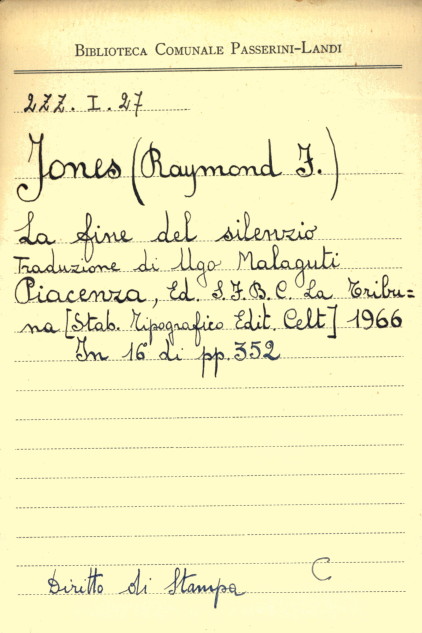 BIBLIOTECA COMUNALE PASSERINI-LANDI
2ZZ. I. 27
Jones (Raymond F.)
La fine del silenzio
Traduzione di Ugo Malaguti
Piacenza, Ed. S.F.B.C. La Tribu=
na [Stab. Tipografico Edit. Celt] 1966
In 16 di pp. 352
C
Diritto di Stampa